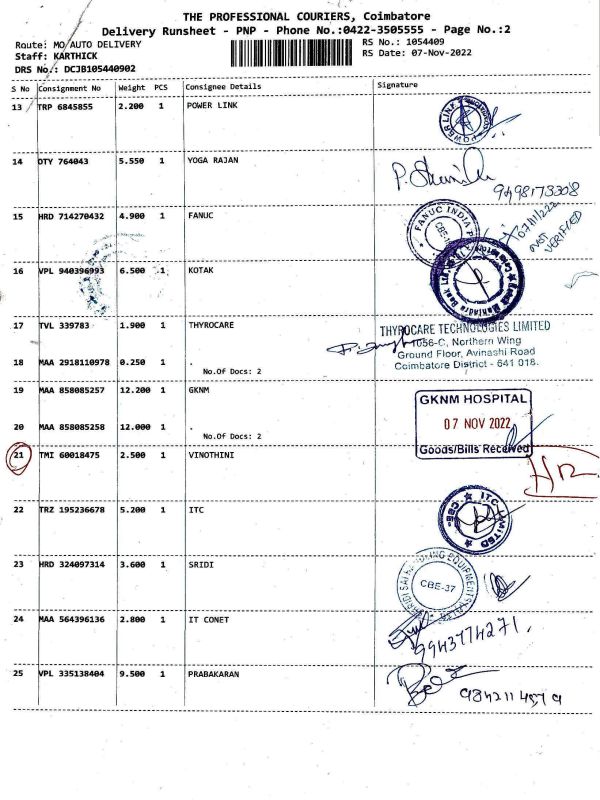 THE PROFESSIONAL COURIERS, Coimbatore
Delivery Runsheet - PNP - Phone No.:0422-3505555 - Page No.:2
Route: MO AUTO DELIVERY
RS No.: 1054409
Staff: KARTHICK
RS Date: 07-Nov-2022
DRS No.: DCJB105440902
S No Consignment No Weight PCS Consignee Details Signature
13 TRP 6845855 2.200 1 POWER LINK
POWER LINK
14 DTY 764043 5.550 1 YOGA RAJAN
9498173308
15 HRD 714270432 4.900 1 FANUC
FANUC INDIA
07/11/22
NOT VERIFIED
16 VPL 940396993 6.500 1 KOTAK
Kotak Mahindra Bank
Coimbatore
17 TVL 339783 1.900 1 THYROCARE
THYROCARE TECHNOLOGIES LIMITED
1056-C, Northern Wing
Ground Floor, Avinashi Road
Coimbatore District - 641 018.
18 MAA 2918110978 0.250 1 .
No.Of Docs: 2
19 MAA 858085257 12.200 1 GKNM
GKNM HOSPITAL
07 NOV 2022
Goods/Bills Received
20 MAA 858085258 12.000 1 .
No.Of Docs: 2
21 TMI 60018475 2.500 1 VINOTHINI
22 TRZ 195236678 5.200 1 ITC
ITC LIMITED
CBE-
23 HRD 324097314 3.600 1 SRIDI
HANDLING EQUIPMENTS
CBE-37
24 MAA 564396136 2.800 1 IT CONET
9943774271.
25 VPL 335138404 9.500 1 PRABAKARAN
9842114579